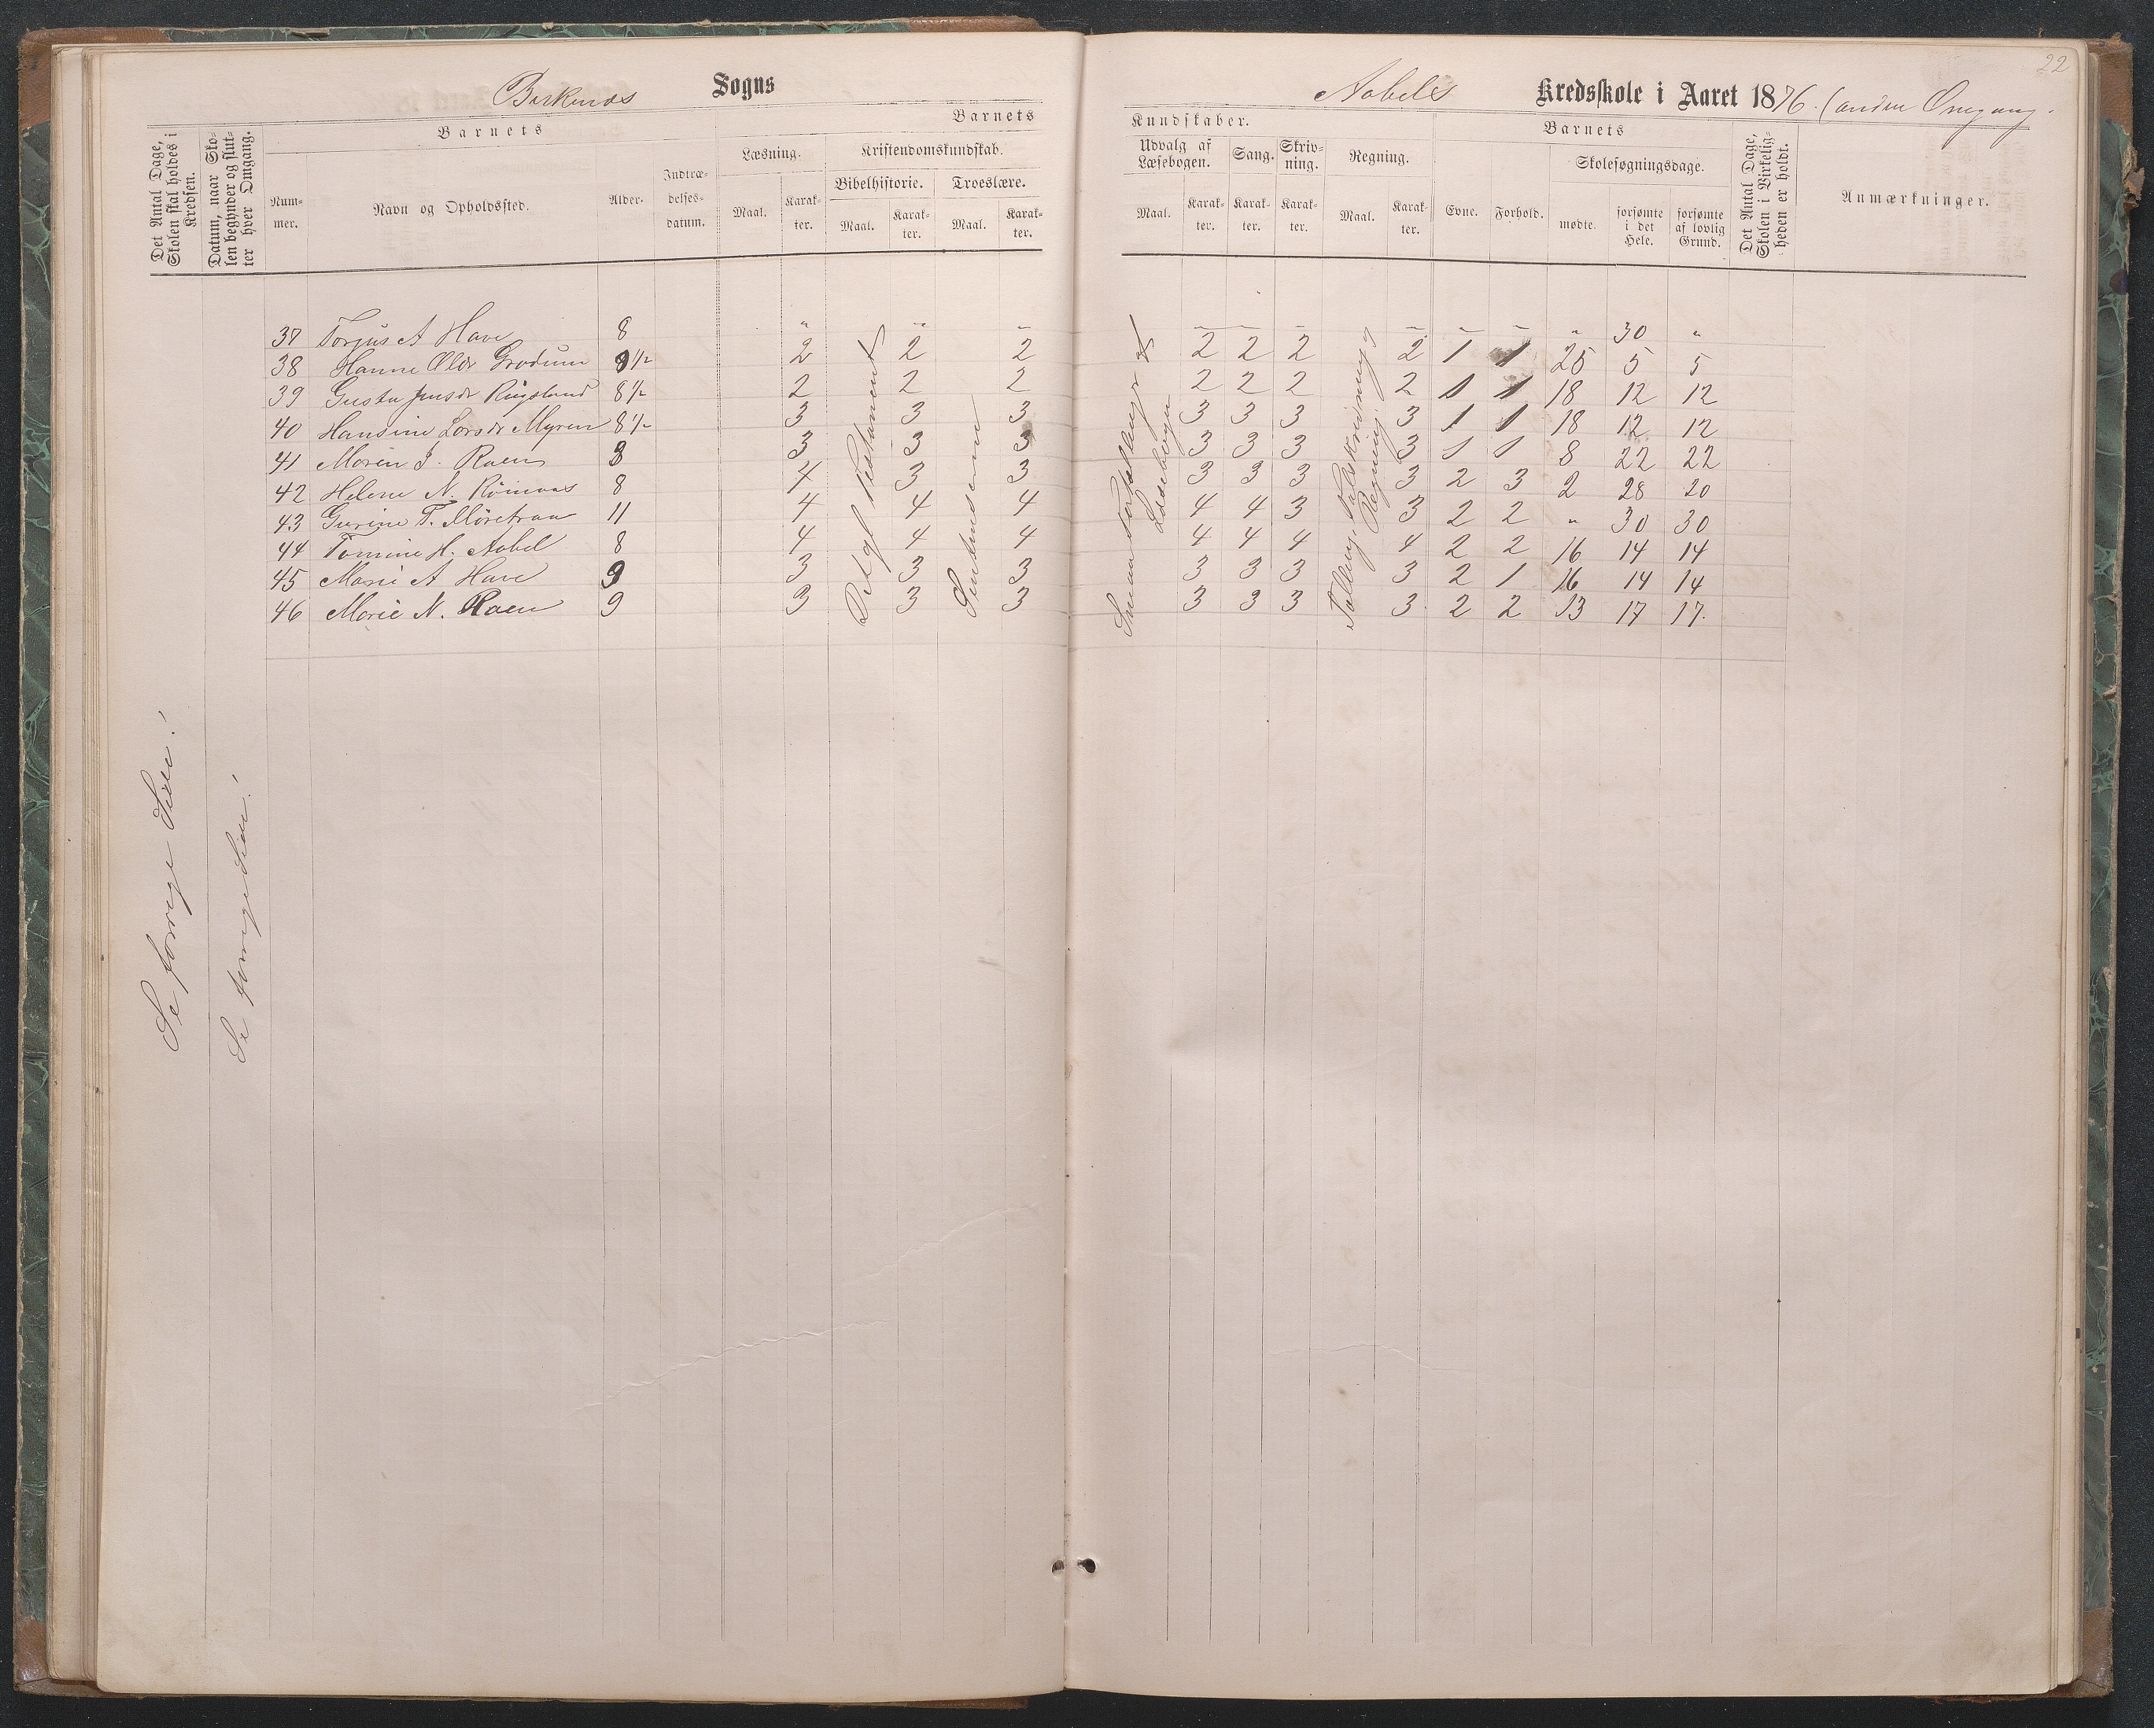 22
Birkenæs Sogns
Aabels Kredsskole i Aaret 1876. (anden Omgang.
Det Antal Dage, Skolen skal holdes i Kredsen.
Datum, naar Skolen begynder og slutter hver Omgang.
Barnets
Nummer.
Navn og Opholdssted.
Alder.
Indtrædelsesdatum.
Barnets
Læsning.
Maal.
Karakter.
Kristendomskundskab.
Bibelhistorie.
Maal.
Karakter.
Troeslære.
Maal.
Karakter.
Kundskaber.
Udvalg af Læsebogen.
Maal.
Karakter.
Sang.
Karakter.
Skrivning.
Karakter.
Regning.
Maal.
Karakter.
Barnets
Evne.
Forhold.
Skolesøgningsdage.
mødte.
forsømte i det Hele.
forsømte af lovlig Grund.
Det Antal Dage, Skolen i Virkeligheden er holdt.
Anmærkninger.
37 Torjus A Have 8 " " – – – – – – – " 30 "
38 Hanne Olsdr Grødum 9 1/2 2 2 2 2 2 2 2 1 1 25 5 5
39 Gusta Jensdr Rugsland 8 1/2 2 2 2 2 2 2 2 1 1 18 12 12
40 Hansine Larsdr Myren 8 1/2 3 3 3 3 3 3 3 1 1 18 12 12
41 Maren J. Raen 8 3 3 3 3 3 3 3 1 1 8 22 22
42 Helene N. 8 4 3 3 3 3 3 3 2 3 2 28 20
43 Gurine T. 11 4 4 4 4 4 3 3 2 2 " 30 30
44 Tomine H. Aabel 8 4 4 4 4 4 4 4 2 2 16 14 14
45 Marie A Have 9 3 3 3 3 3 3 3 2 1 16 14 14
46 Marie N. Raen 9 3 3 3 3 3 3 3 2 2 13 17 17.
Det gl Testament
Smaa Fortællinger af Læsebogen
Regning
Se forrige Side!
Se forrige Side!